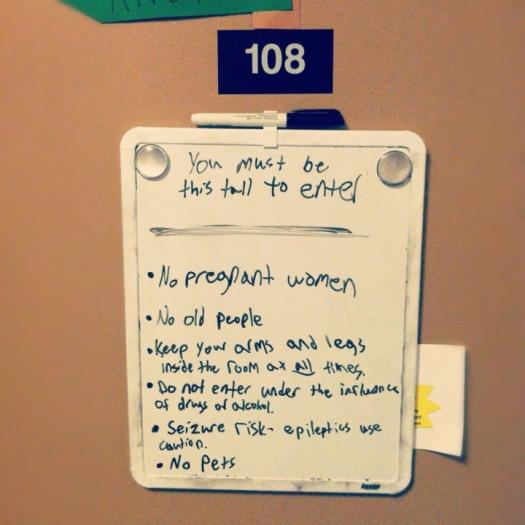 108
You must be
this tall to enter
• No pregnant women
• No old people
• Keep your arms and legs
inside the room at all times.
• Do not enter under the influence
of drugs or alcohol.
• Seizure risk- epileptics use
caution.
• No Pets